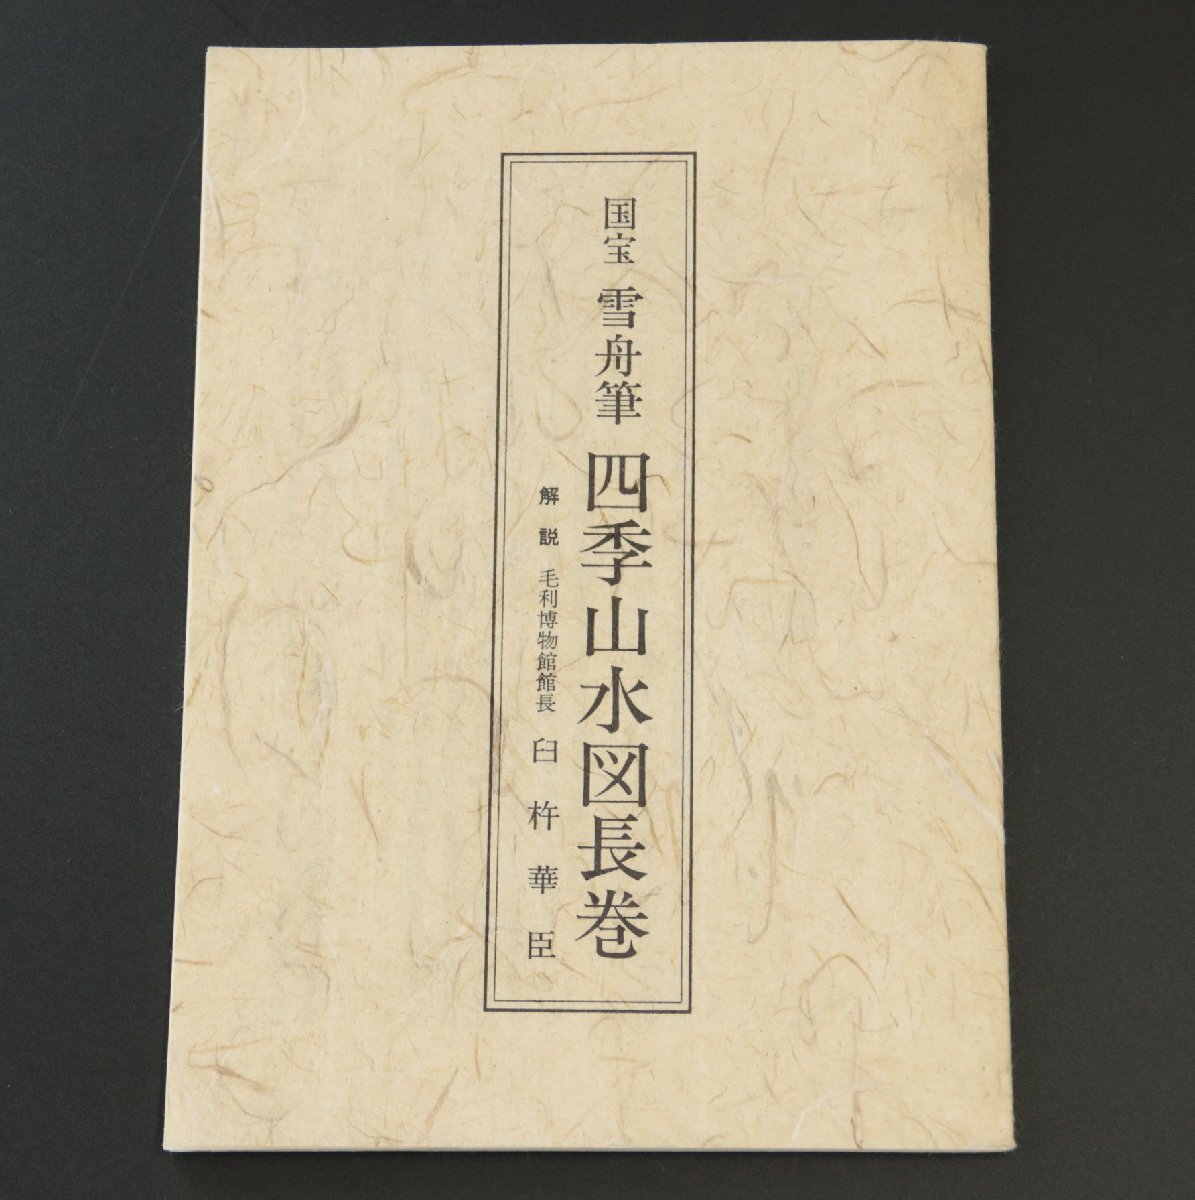 国宝 雪舟筆 四季山水図長巻
解説 毛利博物館館長 臼杵華臣